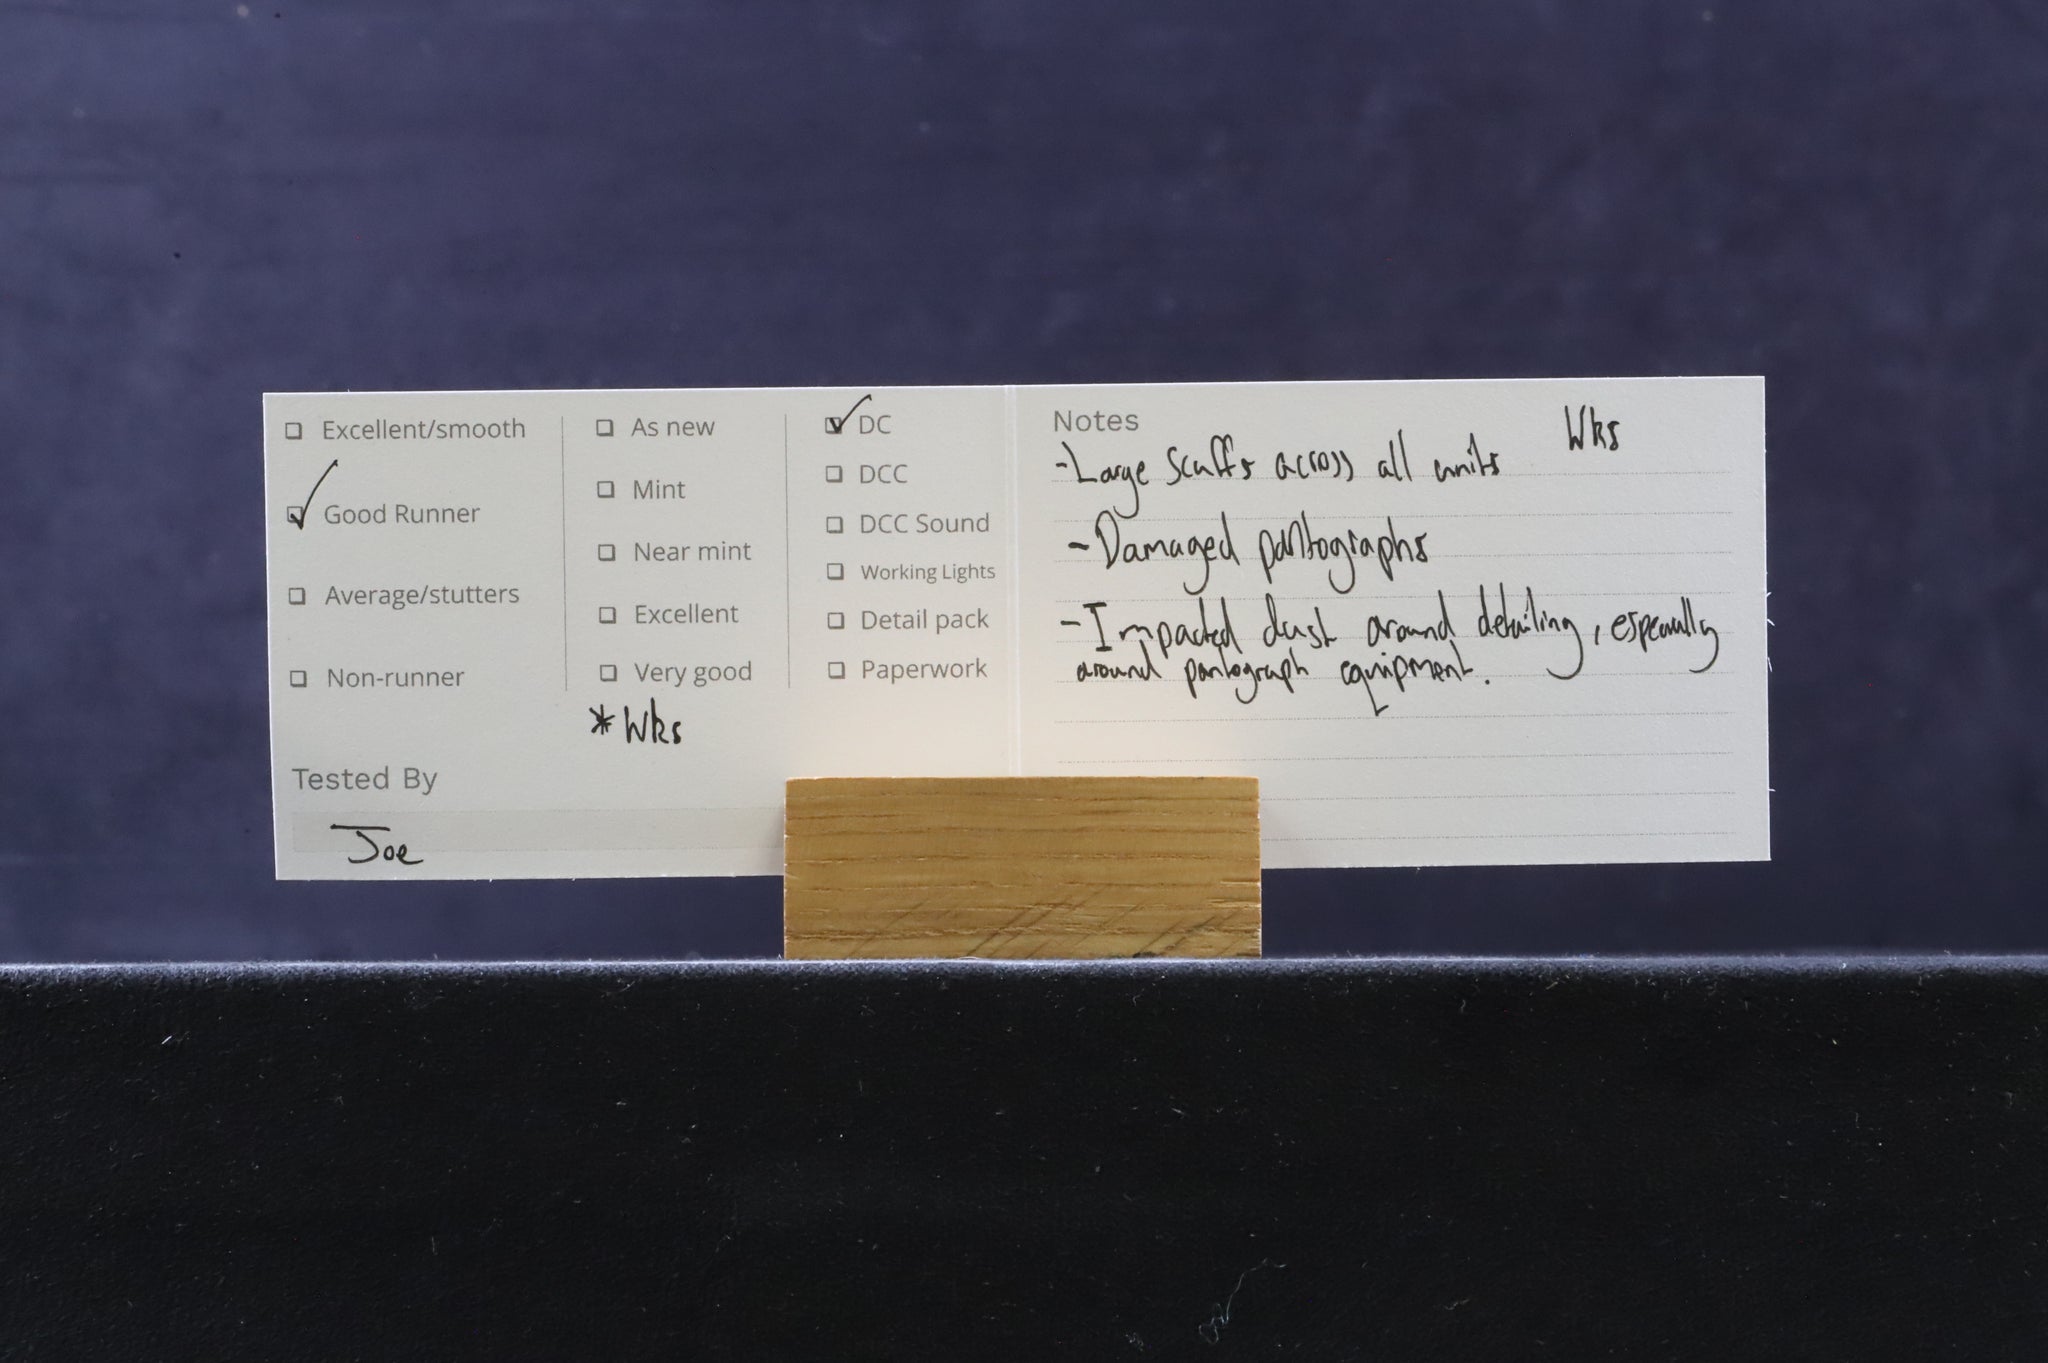 Excellent/smooth
Good Runner
Average/stutters
Non-runner
As new
Mint
Near mint
Excellent
Very good
* Wks
DC
DCC
DCC Sound
Working Lights
Detail pack
Paperwork
Tested By
Joe
Notes
Wks
-Large scuffs across all units
-Damaged pantographs
-Impacted dust around detailing, especially
around pantograph equipment.